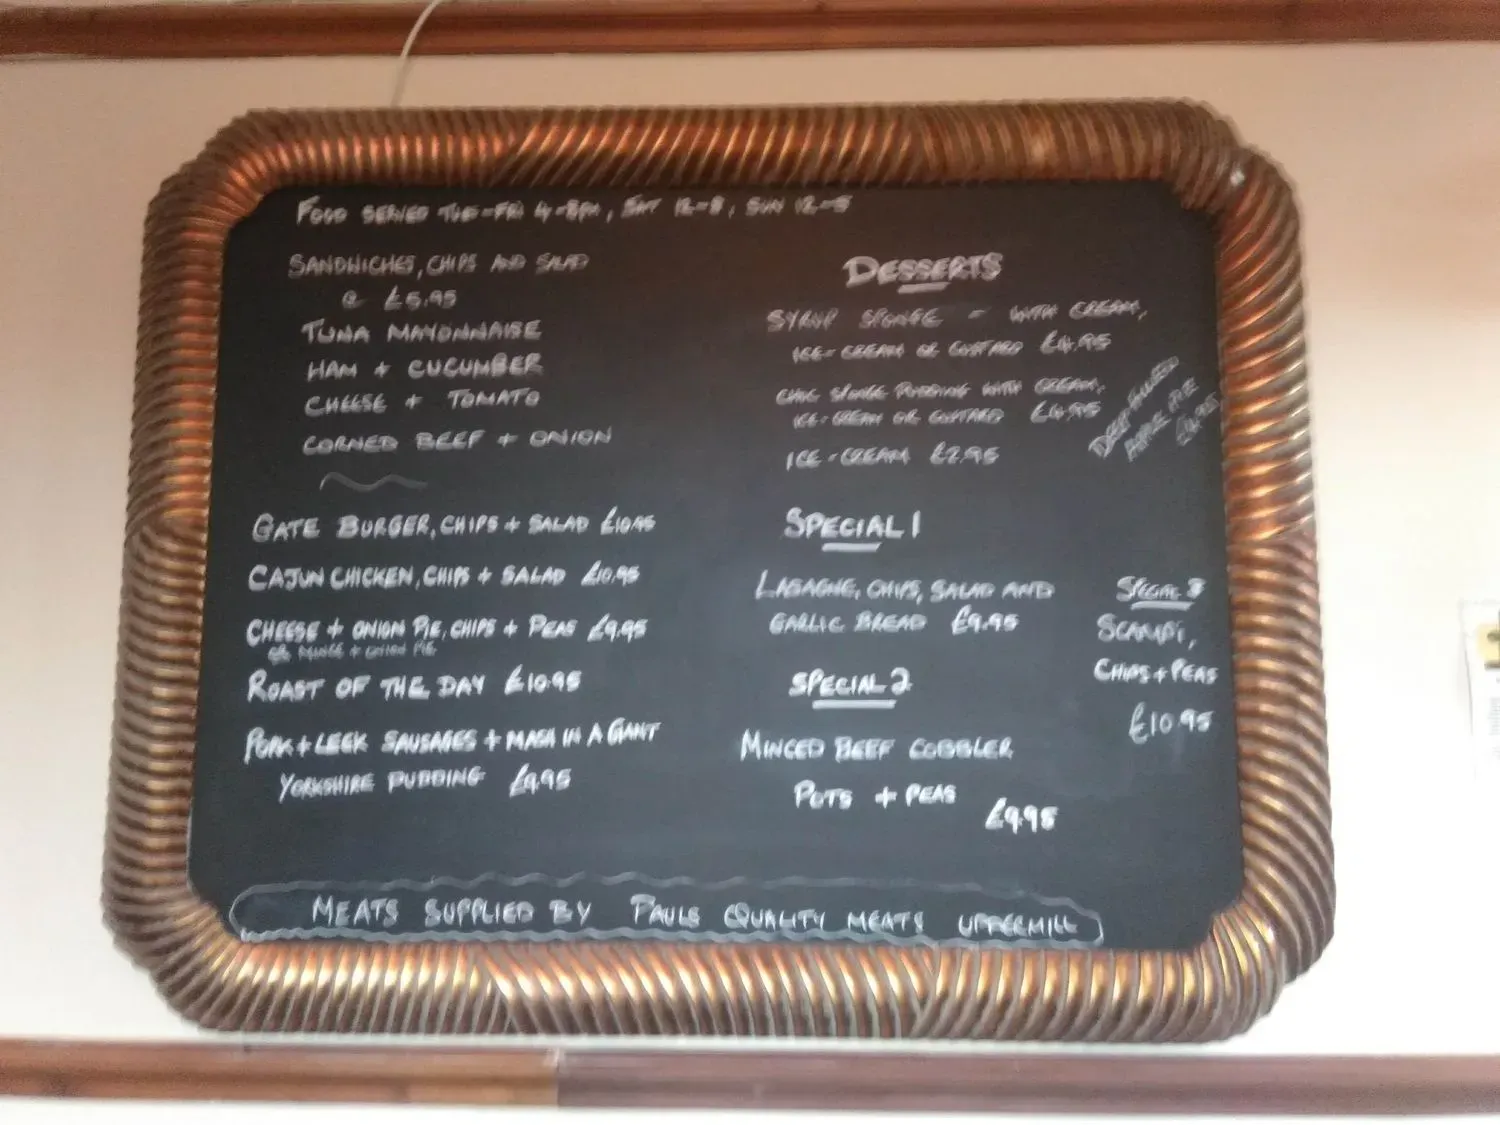 FOOD SERVED TUE-FRI 4-8PM, SAT 12-8, SUN 12-5
SANDWICHES, CHIPS AND SALAD
@ £5.95
TUNA MAYONNAISE
HAM + CUCUMBER
CHEESE + TOMATO
CORNED BEEF + ONION
GATE BURGER, CHIPS + SALAD £10.95
CAJUN CHICKEN, CHIPS + SALAD £10.95
CHEESE + ONION PIE, CHIPS + PEAS £9.95
OR MINCE + ONION PIE
ROAST OF THE DAY £10.95
PORK + LEEK SAUSAGES + MASH IN A GIANT
YORKSHIRE PUDDING £9.95
DESSERTS
SYRUP SPONGE - WITH CREAM,
ICE-CREAM OR CUSTARD £4.95
CHOC SPONGE PUDDING WITH CREAM,
ICE-CREAM OR CUSTARD £4.95
ICE-CREAM £2.95
DEEP FILLED
APPLE PIE
£4.95
SPECIAL 1
LASAGNE, CHIPS, SALAD AND
GARLIC BREAD £9.95
SPECIAL 2
MINCED BEEF COBBLER
POTS + PEAS
£9.95
SPECIAL 3
SCAMPI,
CHIPS + PEAS
£10.95
MEATS SUPPLIED BY PAULS QUALITY MEATS UPPERMILL